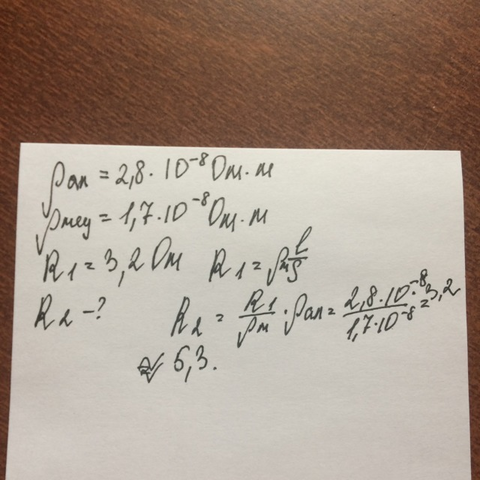 ρал = 2,8 · 10⁻⁸ Ом · м
ρмед = 1,7 · 10⁻⁸ Ом · м
R1 = 3,2 Ом R1 = ρм l/S
R2 - ? R2 = R1/ρм · ρал = 2,8 · 10⁻⁸ · 3,2 / 1,7 · 10⁻⁸ =
≈ 5,3.